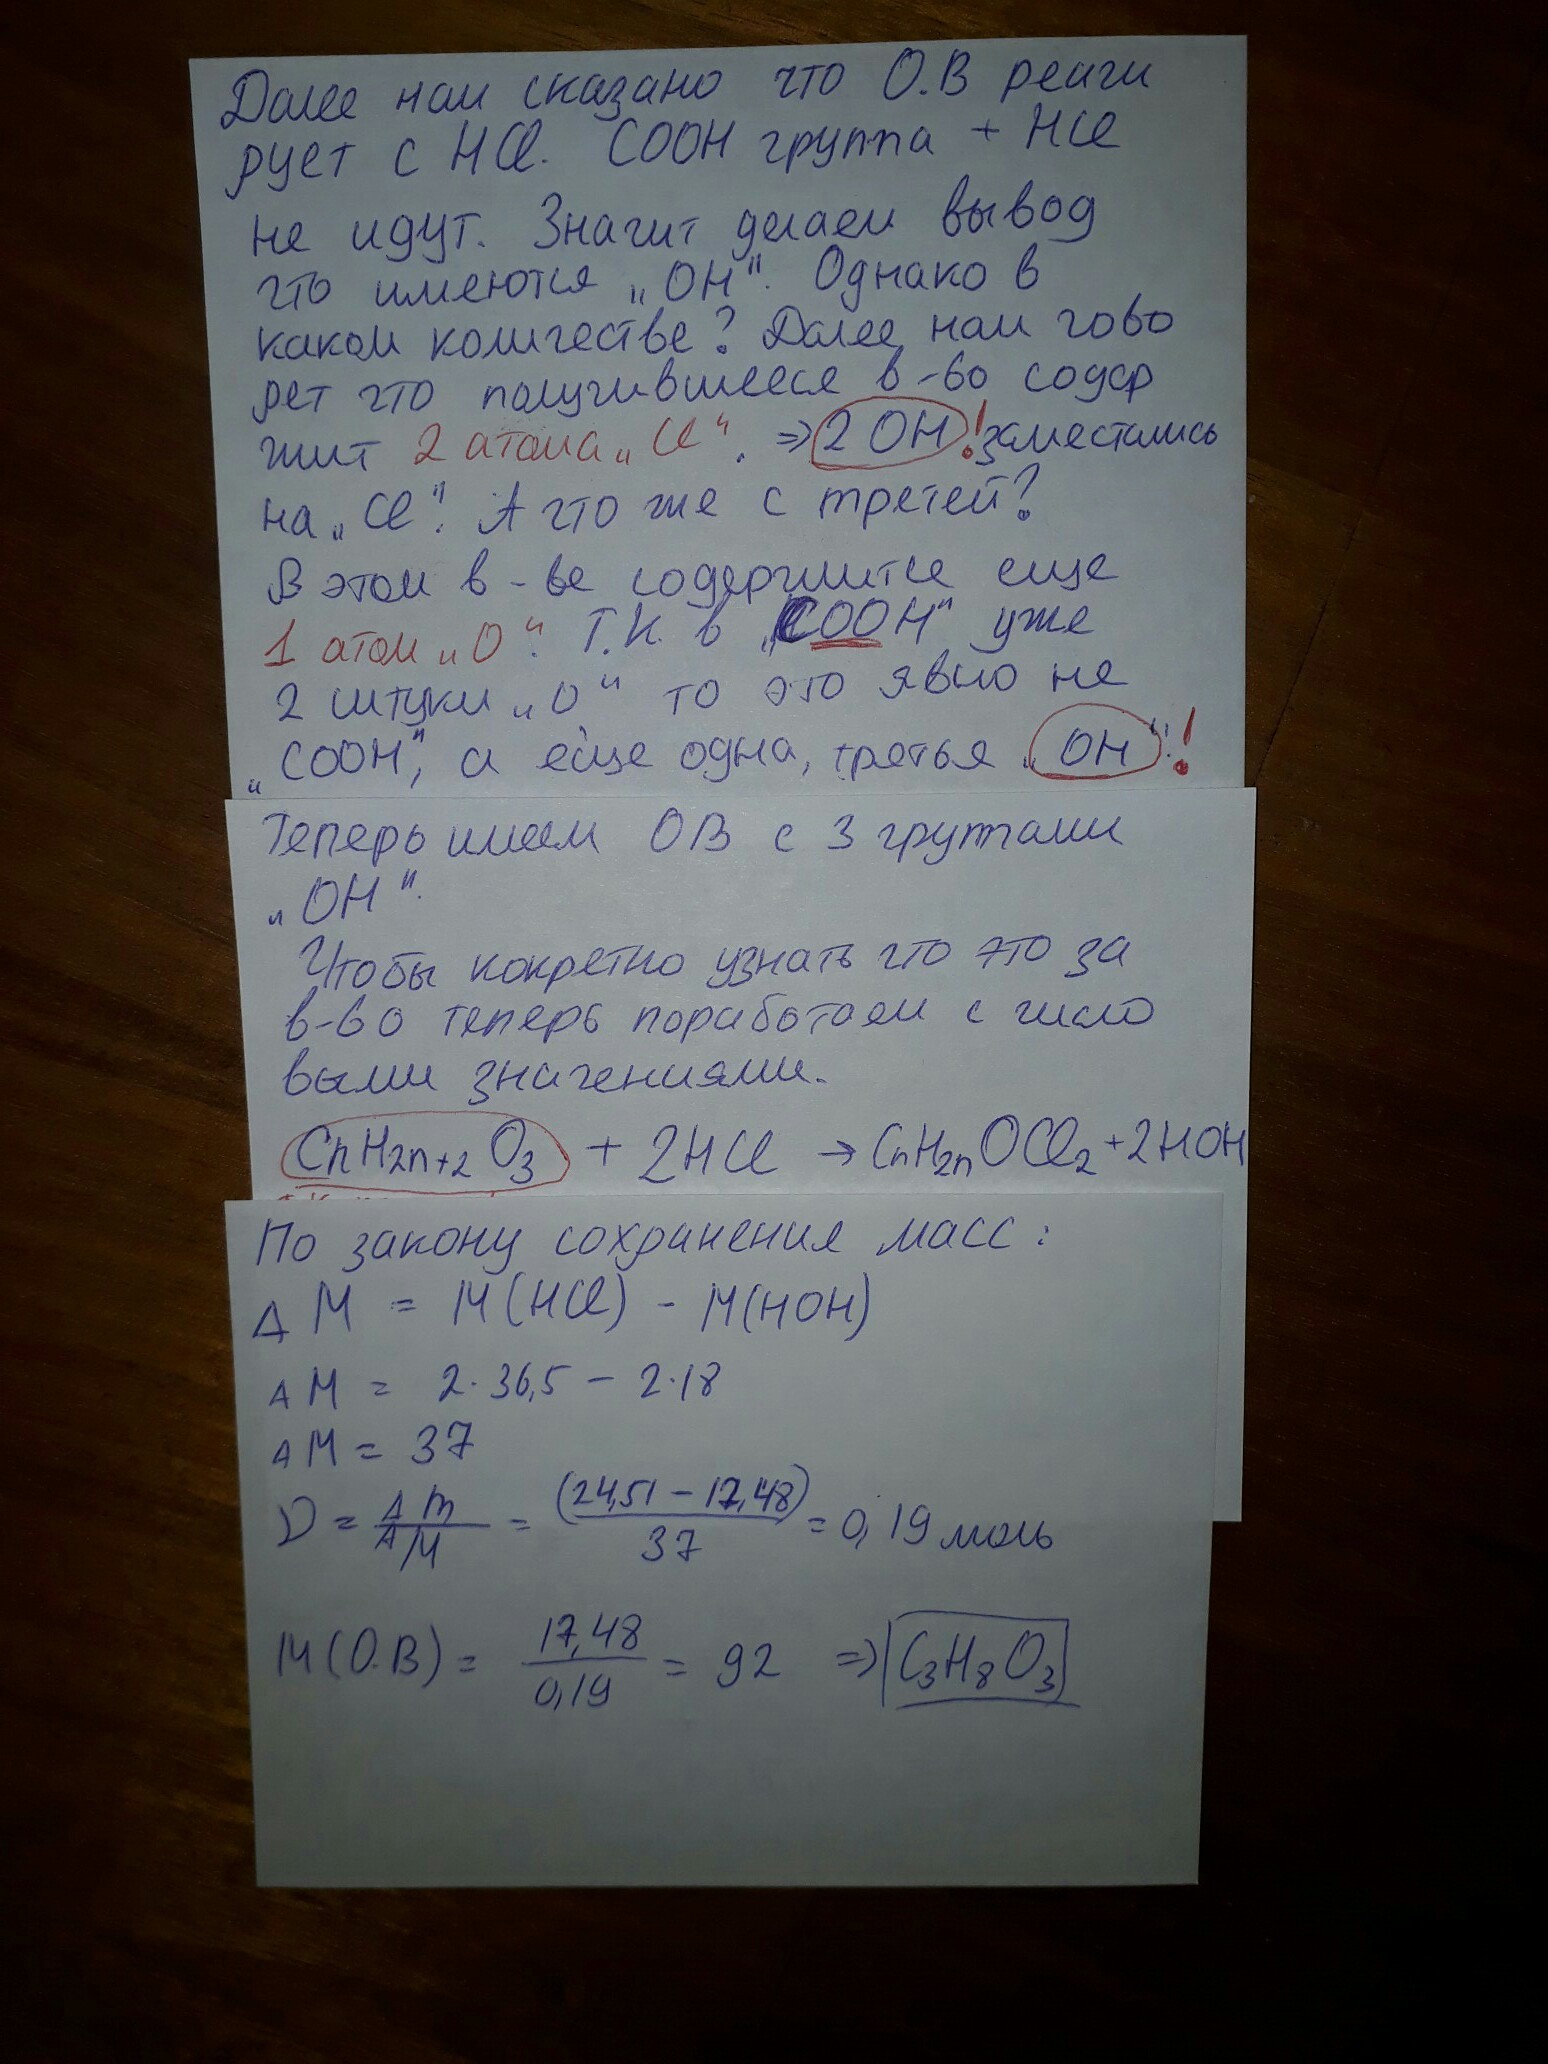 Далее нам сказано что О.В реаги
рует с HCl. COOH группа + HCl
не идут. Значит делаем вывод
что имеются „OH“. Однако в
каком количестве? Далее нам гово
рет что получившееся в-во содер
жит 2 атома „Cl“. => 2 OH! заместились
на „Cl“. А что же с третей?
В этом в-ве содержится еще
1 атом „O“. Т.К. в „COOH“ уже
2 штуки „O“ то это явно не
„COOH“, а еще одна, третья „OH“!
Теперь имеем ОВ с 3 группами
„OH“.
Чтобы кокретно узнать что это за
в-во теперь поработаем с число
выми значениями.
CnH2n+2O3 + 2HCl → CnH2nOCl2 + 2HOH
По закону сохранения масс:
Δ M = M(HCl) - M(HOH)
Δ M = 2·36,5 - 2·18
Δ M = 37
ν = Δm/ΔM = (24,51 - 17,48)/37 = 0,19 моль
M(О.В) = 17,48/0,19 = 92 => C3H8O3